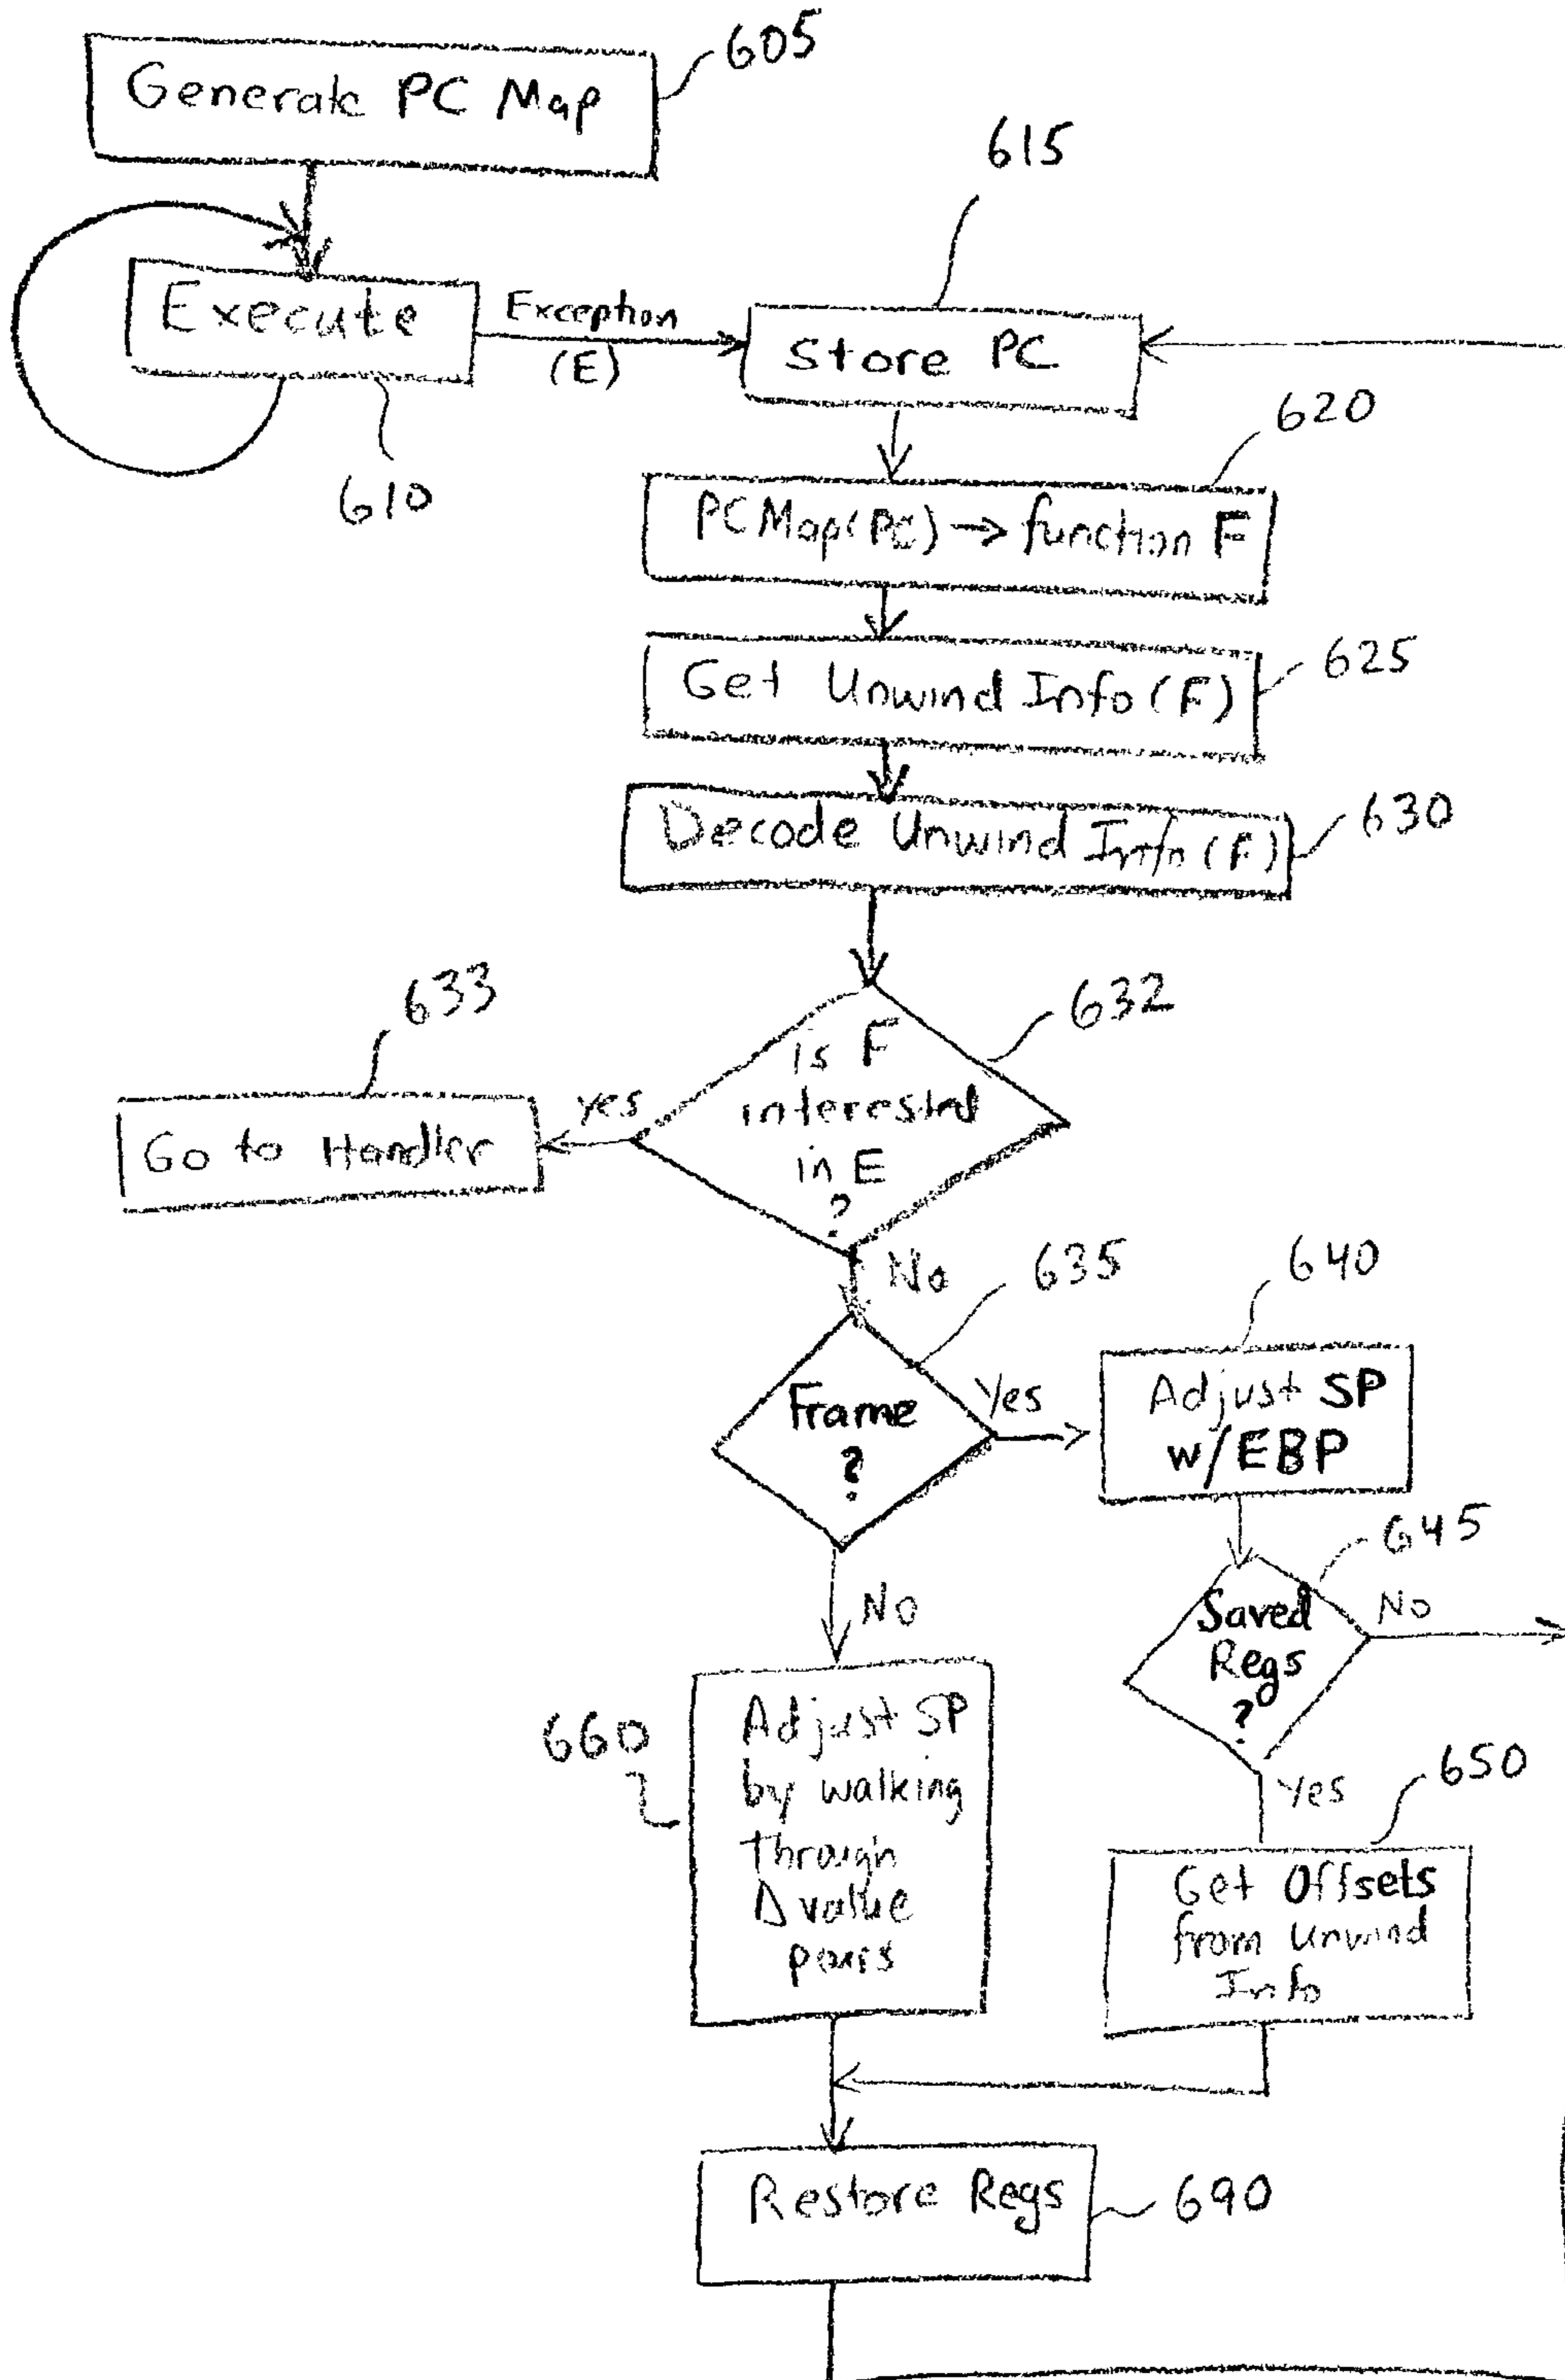 605
Generate PC Map
615
Execute
Exception
(E)
Store PC
610
620
PC Map(PC) → function F
625
Get Unwind Info (F)
630
Decode Unwind Info (F)
633
632
is F
interested
in E
?
yes
Go to Handler
No
635
640
Frame
?
Yes
Adjust SP
w/EBP
645
Saved
Regs
?
No
No
660
Adjust SP
by walking
through
Δ value
pairs
Yes
650
Get Offsets
from Unwind
Info
Restore Regs
690